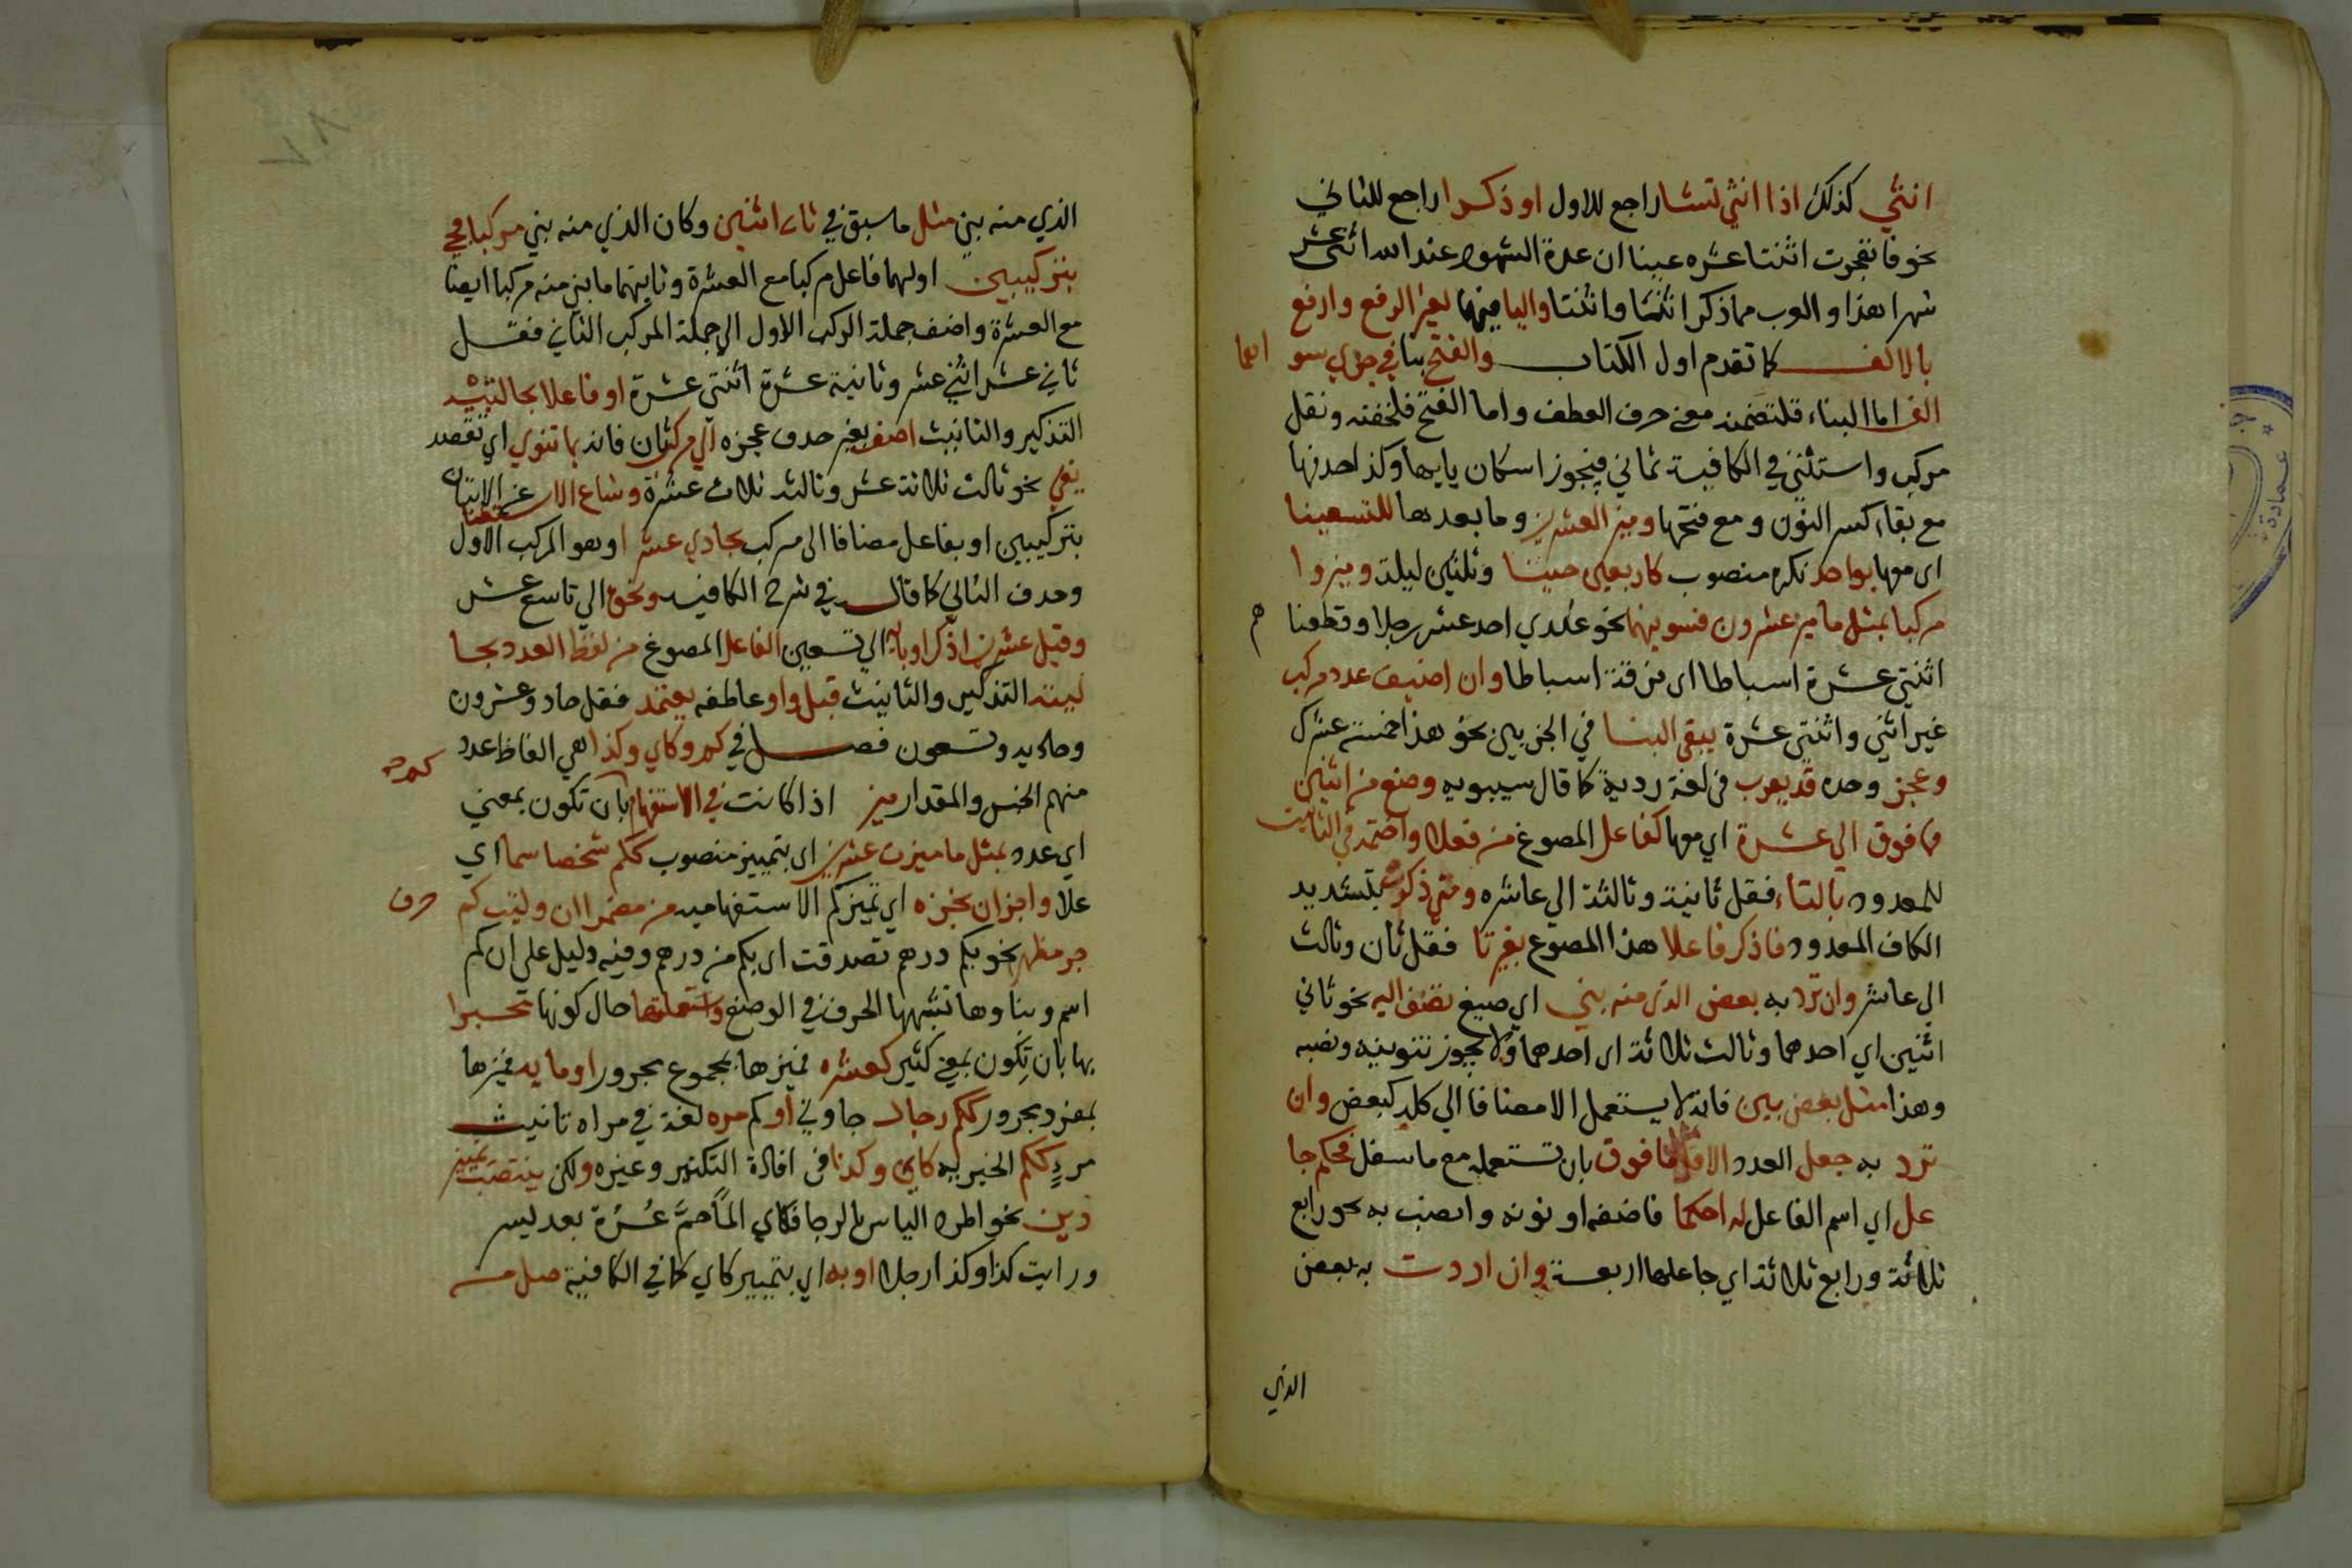 انثي كذلك اذا انثي تشا راجع للاول او ذكرا راجع للثاني
نحو فانفجرت اثنتا عشره عينا ان عدة الشهور عند الله اثني عشر
شهرا هذا والعرب مما ذكر اثنتا واثنتا واليا فيهما لغير الرفع وارفع
بالالف كما تقدم اول الكتاب والفتح بنا في جزي سو اهما
الف اما البناء فلتضمنه معني حرف العطف واما الفتح فلخفته وثقل
مركب واستثني في الكافية ثماني فيجوز اسكان يايها وكذا حذفها
مع بقاء كسر النون ومع فتحها وميز العشرين وما بعدها للتسعينا
اي معها بواحد نكره منصوب كاربعين حينا وثلثين ليلة وميزوا
مركبا بمثل ما ميز عشرون فسوينهما نحو عندي احد عشر رجلا وقطعناهم
اثنتي عشرة اسباطا اي فرقة اسباطا وان اضيف عدد مركب
غير اثني واثنتي عشرة يبقي البنا في الجزيين نحو هذا خمسة عشرك
وعجز وحده قد يعرب في لغة ردية كما قال سيبويه وصغ من اثنين
فما فوق الي عشرة اي معها كفاعل المصوغ من فعلا واختمه في التانيث
للمعدود بالتاء فقل ثانية وثالثة الي عاشره ومتي ذكرت بتشديد
الكاف المعدود فاذكر فاعلا هذا المصوغ بغير تا فقل ثان وثالث
الي عاشر وان ترد به بعض الذي منه بني اي صيغ تضف اليه نحو ثاني
اثنين اي احدهما وثالث ثلاثة اي احدهما ولا يجوز تنوينه ونصبه
وهذا مثل بعض بين فانه لا يستعمل الا مضافا الي كله كبعض وان
ترد به جعل العدد الاقل مثل ما فوق بان تستعمله مع ما سفل فحكم جا
عل اي اسم الفاعل له احكما فاضفه او نونه وانصب به نحو رابع
ثلاثة ورابع ثلاثة اي جاعلها اربعة وان اردت به بعض
الذي
الذي منه بني مثل ما سبق في ثاني اثنين وكان الذي منه بني مركبا فجي
بتركيبين اولهما فاعل مركبا مع العشرة وثانيهما ما بني منه مركبا ايضا
مع العشرة واضف جملة المركب الاول الي جملة المركب الثاني فقل
ثاني عشر اثني عشر وثانية عشرة اثنتي عشرة او فاعلا بحالتيه
التذكير والتانيث اضف بغير حذف عجزه الي مركب ثان فانه بما تنوي اي تقصد
يفي نحو ثالث ثلاثة عشر وثالثه ثلاث عشرة وشاع الاستغنا عن الاتيان
بتركيبين او بفاعل مضافا الي مركب بحادي عشر او هو المركب الاول
وحذف الثاني كما قال في شرح الكافيه ونحوه الي تاسع عشر
وقبل عشرين اذكرا وبابه الي تسعين الفاعل المصوغ من لفظ العدد بحا
لتيه التذكير والتانيث قبل واو عاطفه يعتمد فقل حاد وعشرون
وحاديه وتسعون فصل في كم وكاي وكذا هي الفاظ عدد
منهم الجنس والمقدار ميز اذا كانت في الاستفهام بان تكون بمعني كم
اي عدد بمثل ما ميزت عشرين اي بتمييز منصوب ككم شخصا سما اي
علا واجز ان تجره اي تميز كم الاستفهاميه من مضمرا ان وليت كم حرف
جر مظهرا نحو بكم درهم تصدقت اي بكم من درهم وفيه دليل علي ان كم
اسم وبناوها لشبهها الحرف في الوضع واستعملنها حال كونها مخبرا
بها بان تكون بمعني كثير كعشره فميزها بمجموع مجرور او مايه فميزها
بمفرد مجرور ككم رجال جاوني او كم مره لغة في مراه تانيث
مرءٍ ككم الخبريه كاي وكذا في افادة التكثير وغيره ولكن ينتصب تمييز
ذين نحو اطرد الياس بالرجا فكاي الماً حمَّ عُسْرَة بعد يسر
ورايت كذا وكذا رجلا او به اي بتمييز كاي كما في الكافية صل من